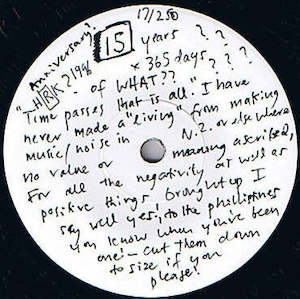 17/250
Anniversary?
15 years ? ?
HRK? 1996 × 365 days ? ?
of WHAT?? ?
"Time passes that is all" I have
never made a "living" from making
music/noise in N.Z. or elsewhere
no value or meaning ascribed,
For all the negativity as well as
positive things brought up I
say well yes, to the philippines
you know when you've been
one! – cut them down
to size if you
please!